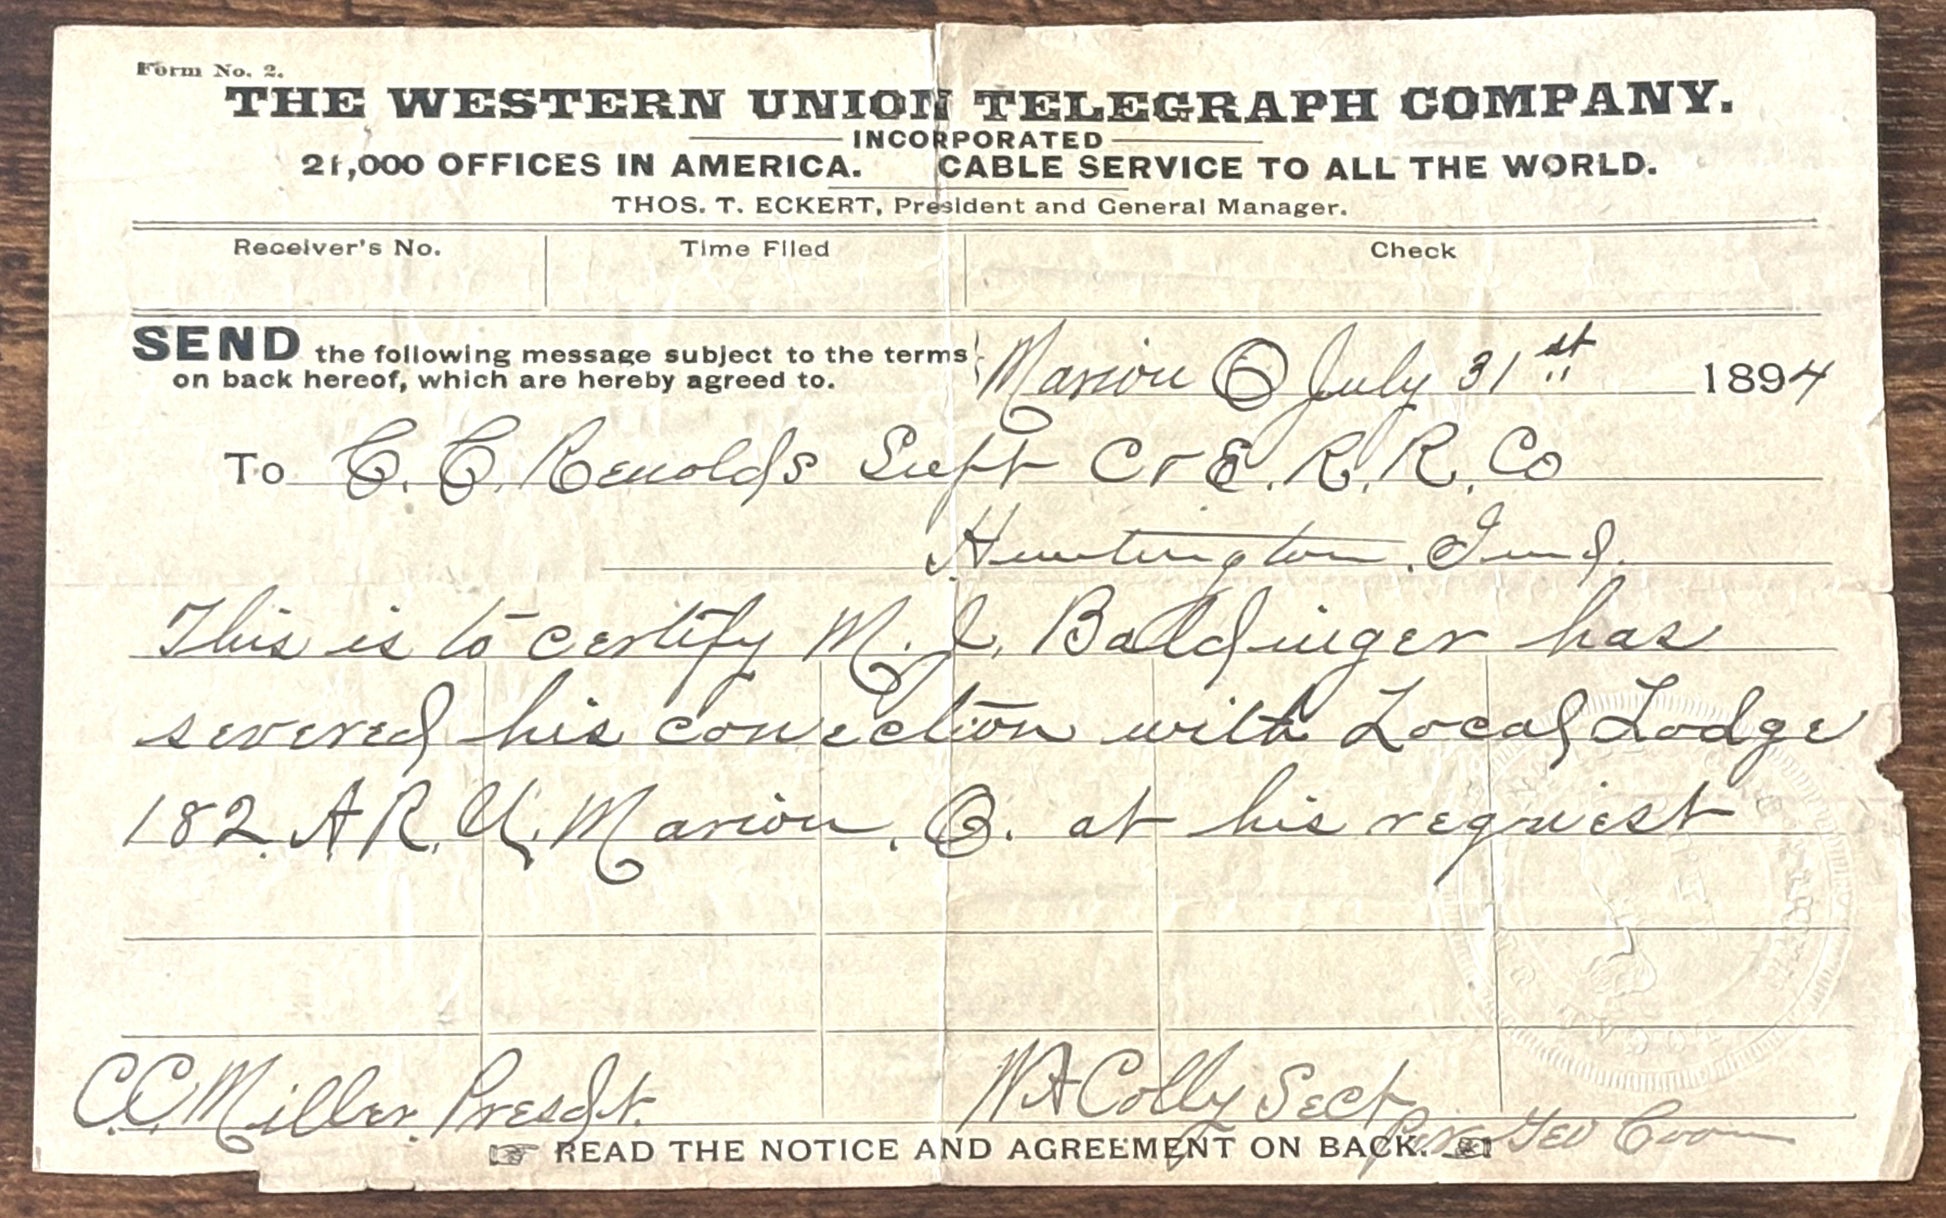 Form No. 2.
THE WESTERN UNION TELEGRAPH COMPANY.
INCORPORATED
21,000 OFFICES IN AMERICA. CABLE SERVICE TO ALL THE WORLD.
THOS. T. ECKERT, President and General Manager.
Receiver's No. Time Filed Check
SEND the following message subject to the terms
on back hereof, which are hereby agreed to.
Marion O July 31st 1894
To C. C. Renolds Supt C & E. R. R. Co
Huntington. Ind.
This is to certify M. J. Baldinger has
severed his conection with Local Lodge
182. A. R. U. Marion, O. at his request
C.C. Miller. Presdt. W A Colly Sect
Geo Coon
READ THE NOTICE AND AGREEMENT ON BACK.